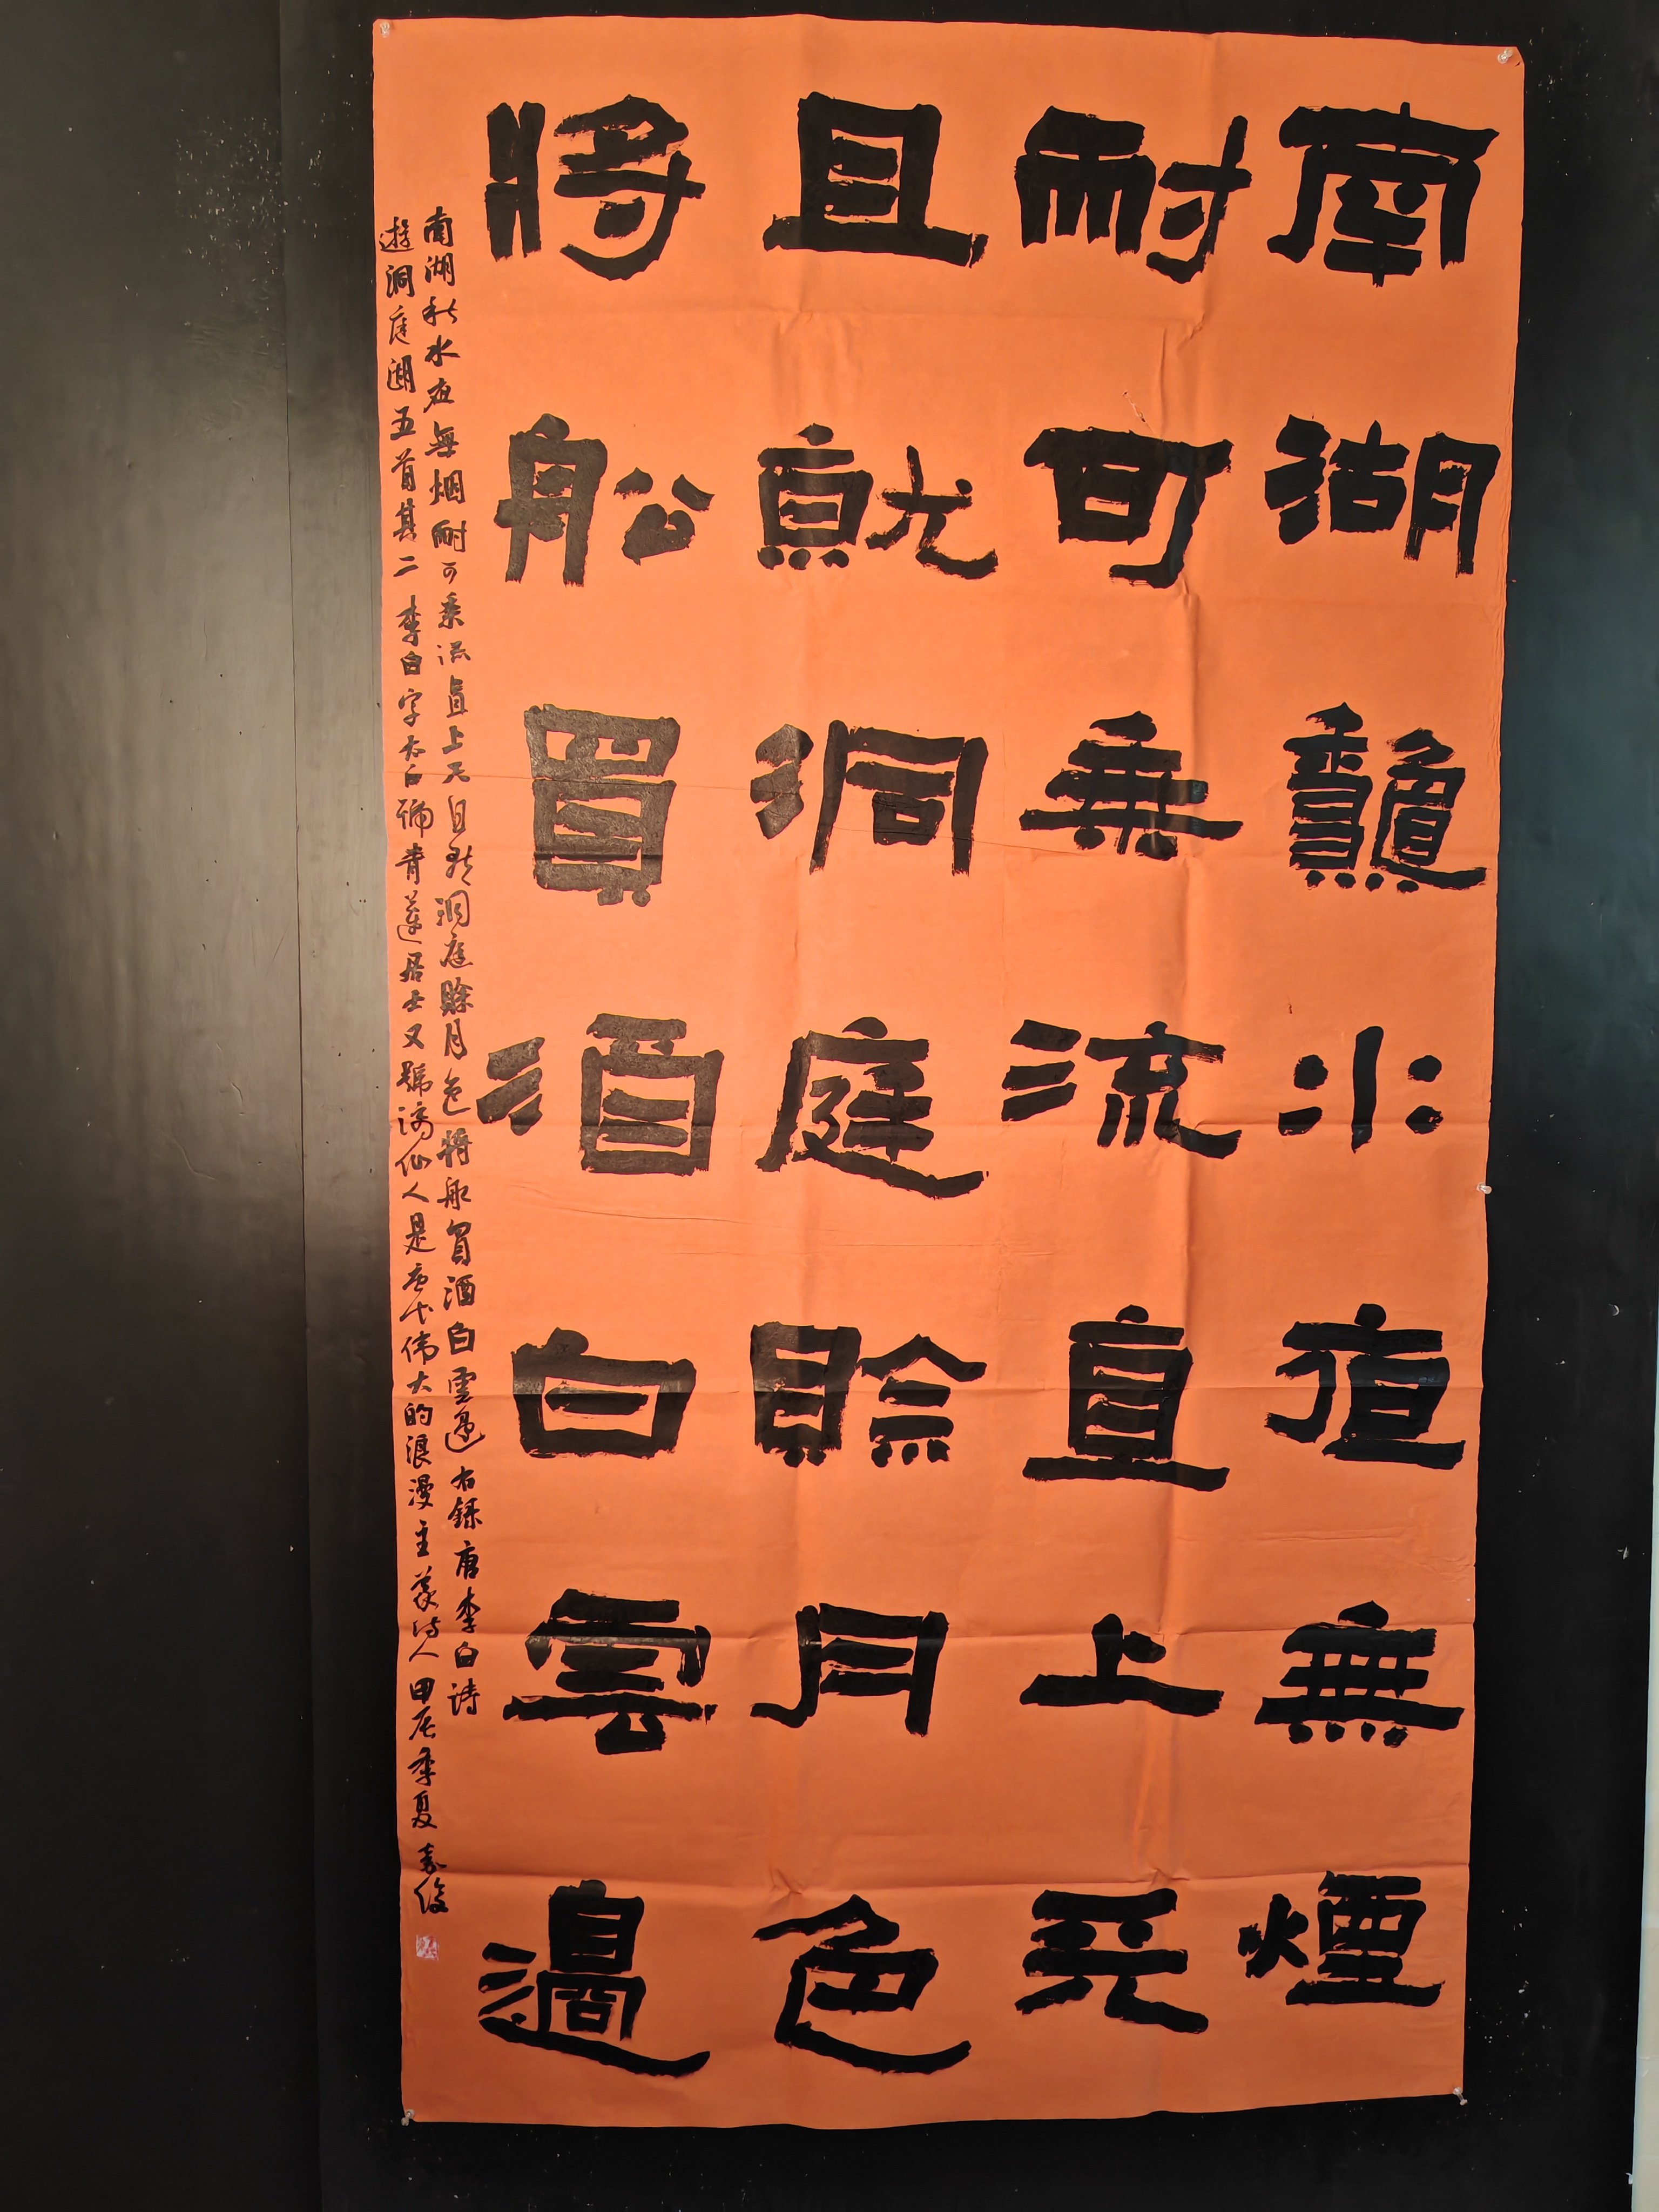 南湖龝水夜無煙
耐可乗流直上天
且就洞庭賒月色
將船買酒白雲邊
南湖秋水夜無烟耐可乘流直上天且就洞庭賒月色將船買酒白雲邊右錄唐李白詩
遊洞庭湖五首其二李白字太白號青蓮居士又號謫仙人是唐代伟大的浪漫主義诗人甲辰季夏